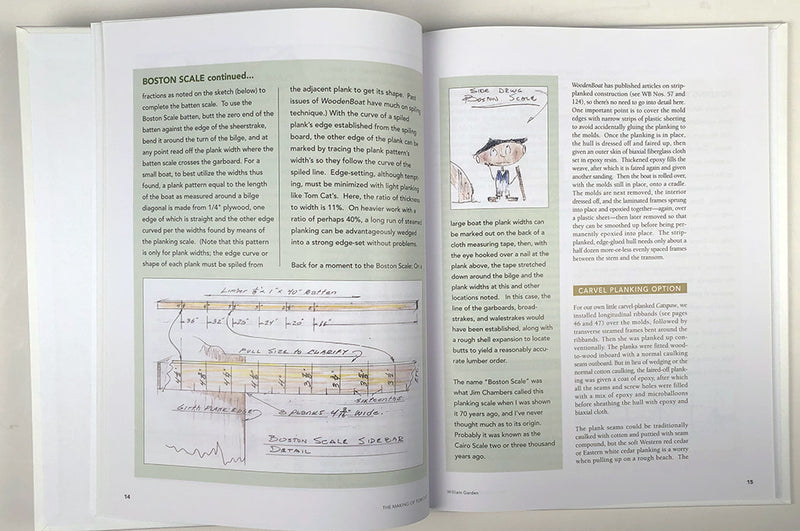 BOSTON SCALE continued...
fractions as noted on the sketch (below) to
complete the batten scale. To use the
Boston Scale batten, butt the zero end of the
batten against the edge of the sheerstrake,
bend it around the turn of the bilge, and at
any point read off the plank width where the
batten scale crosses the garboard. For a
small boat, to best utilize the widths thus
found, a plank pattern equal to the length
of the boat as measured around a bilge
diagonal is made from 1/4" plywood, one
edge of which is straight and the other edge
curved per the widths found by means of
the planking scale. (Note that this pattern
is only for plank widths; the edge curve or
shape of each plank must be spiled from
the adjacent plank to get its shape. Past
issues of WoodenBoat have much on spiling
technique.) With the curve of a spiled
plank's edge established from the spiling
board, the other edge of the plank can be
marked by tracing the plank pattern's
width's so they follow the curve of the
spiled line. Edge-setting, although tempt-
ing, must be minimized with light planking
like Tom Cat's. Here, the ratio of thickness
to width is 11%. On heavier work with a
ratio of perhaps 40%, a long run of steamed
planking can be advantageously wedged
into a strong edge-set without problems.
Back for a moment to the Boston Scale. On a
Limber 1/8" x 1" x 40" Batten
36" 32" 28" 24" 20" 16"
FULL SIZE TO CLARIFY
sixteenths
Girth PLANK EDGE
3 PLANKS 4 7/8" WIDE.
BOSTON SCALE SIDEBAR
DETAIL
14
THE MAKING OF TOM CAT
SIDE DRWG
BOSTON SCALE
large boat the plank widths can
be marked out on the back of a
cloth measuring tape, then, with
the eye hooked over a nail at the
plank above, the tape stretched
down around the bilge and the
plank widths at this and other
locations noted. In this case, the
line of the garboards, broad-
strakes, and walestrakes would
have been established, along with
a rough shell expansion to locate
butts to yield a reasonably accu-
rate lumber order.
The name "Boston Scale" was
what Jim Chambers called this
planking scale when I was shown
it 70 years ago, and I've never
thought much as to its origin.
Probably it was known as the
Cairo Scale two or three thousand
years ago.
William Garden
WoodenBoat has published articles on strip-
planked construction (see WB Nos. 57 and
124), so there's no need to go into detail here.
One important point is to cover the mold
edges with narrow strips of plastic sheeting
to avoid accidentally gluing the planking to
the molds. Once the planking is in place,
the hull is dressed off and faired up, then
given an outer skin of biaxial fiberglass cloth
set in epoxy resin. Thickened epoxy fills the
weave, after which it is faired again and given
another sanding. Then the boat is rolled over,
with the molds still in place, onto a cradle.
The molds are next removed, the interior
dressed off, and the laminated frames sprung
into place and epoxied together—again, over
a plastic sheet—then later removed so that
they can be smoothed up before being per-
manently epoxied into place. The strip-
planked, edge-glued hull needs only about a
half dozen more-or-less evenly spaced frames
between the stem and the transom.
CARVEL PLANKING OPTION
For our own little carvel-planked Catspaw, we
installed longitudinal ribbands (see pages
46 and 47) over the molds, followed by
transverse steamed frames bent around the
ribbands. Then she was planked up con-
ventionally. The planks were fitted wood-
to-wood inboard with a normal caulking
seam outboard. But in lieu of wedging or the
normal cotton caulking, the faired-off plank-
ing was given a coat of epoxy, after which
all the seams and screw holes were filled
with a mix of epoxy and microballoons
before sheathing the hull with epoxy and
biaxial cloth.
The plank seams could be traditionally
caulked with cotton and puttied with seam
compound, but the soft Western red cedar
or Eastern white cedar planking is a worry
when pulling up on a rough beach. The
15